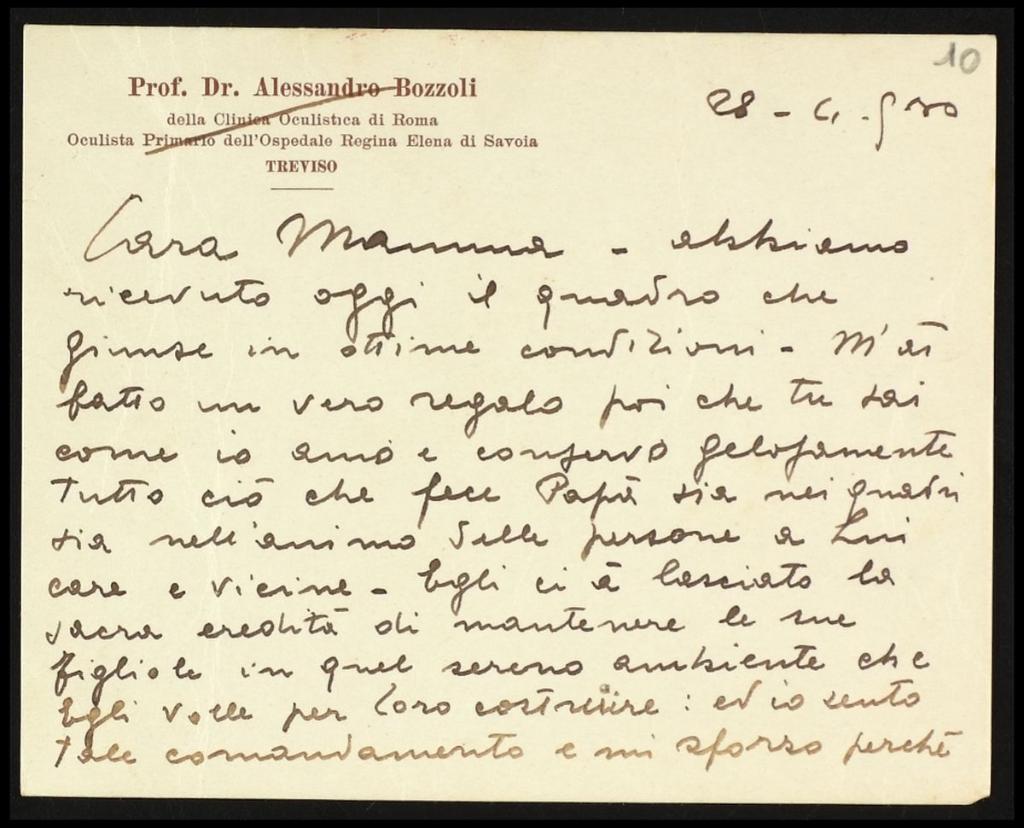 10
Prof. Dr. Alessandro Bozzoli
della Clinica Oculistica di Roma
Oculista Primario dell'Ospedale Regina Elena di Savoia
TREVISO
28 -
Cara Mamma - abbiamo
ricevuto oggi il quadro che
giunse in ottime condizioni - M'ai
fatto un vero regalo poi che tu sai
come io amo e conservo gelosamente
tutto ciò che fece Papà sia nei quadri
sia nell'animo delle persone a Lui
care e vicine - Egli ci à lasciato la
sacra eredità di mantenere le sue
figliole in quel sereno ambiente che
Egli volle per loro costruire : ed io sento
tale comandamento e mi sforzo perchè